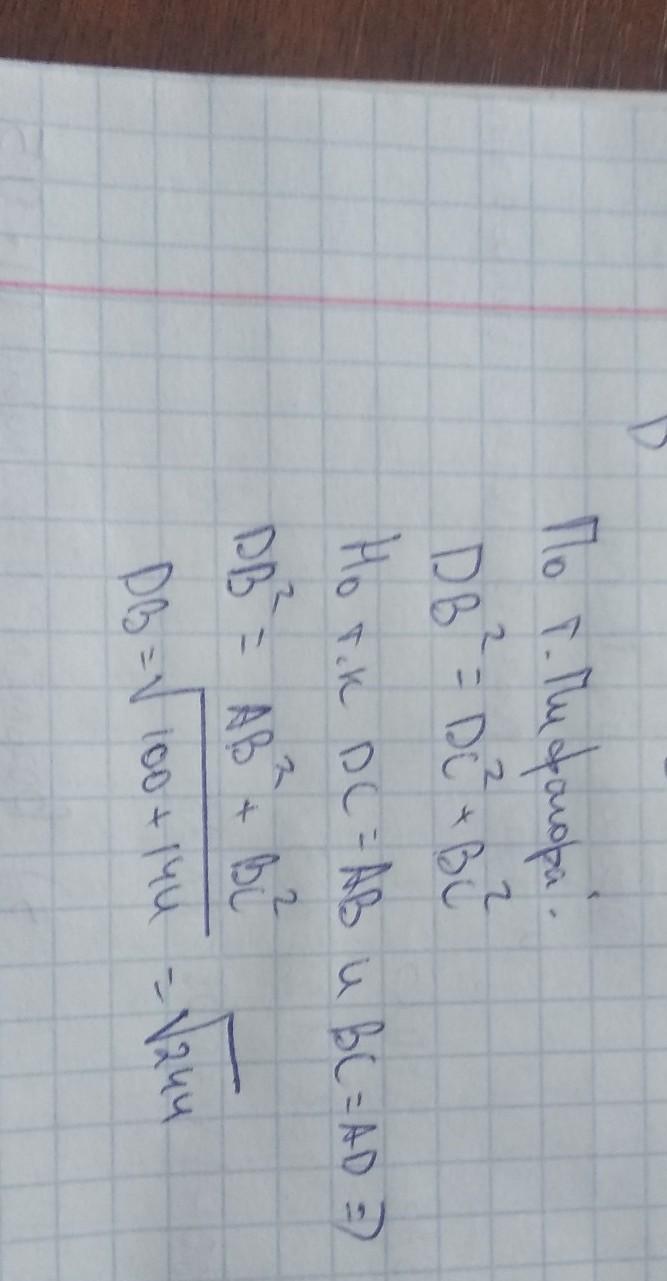 D
По т. Пифагора:
DB² = DC² + BC²
Но т.к DC = AB и BC = AD ⇒
DB² = AB² + BC²
DB = √100 + 144 = √244